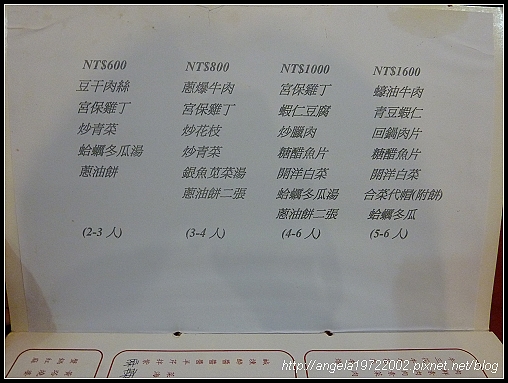 NT$600
豆干肉絲
宮保雞丁
炒青菜
蛤蠣冬瓜湯
蔥油餅
(2-3 人)
NT$800
蔥爆牛肉
宮保雞丁
炒花枝
炒青菜
銀魚莧菜湯
蔥油餅二張
(3-4 人)
NT$1000
宮保雞丁
蝦仁豆腐
炒臘肉
糖醋魚片
開洋白菜
蛤蠣冬瓜湯
蔥油餅二張
(4-6 人)
NT$1600
蠔油牛肉
青豆蝦仁
回鍋肉片
糖醋魚片
開洋白菜
合菜代帽(附餅)
蛤蠣冬瓜
(5-6 人)
http://angela19722002.pixnet.net/blog